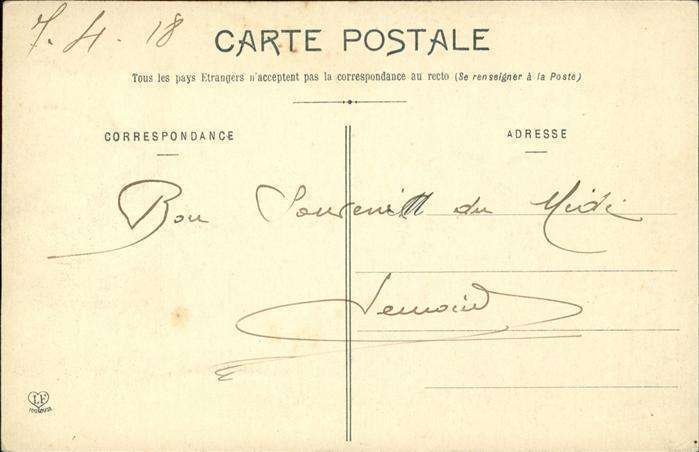 7. 4. 18
CARTE POSTALE
Tous les pays Etrangers n'acceptent pas la correspondance au recto (Se renseigner à la Poste)
CORRESPONDANCE
ADRESSE
Bon Souvenir du Midi
LF
TOULOUSE